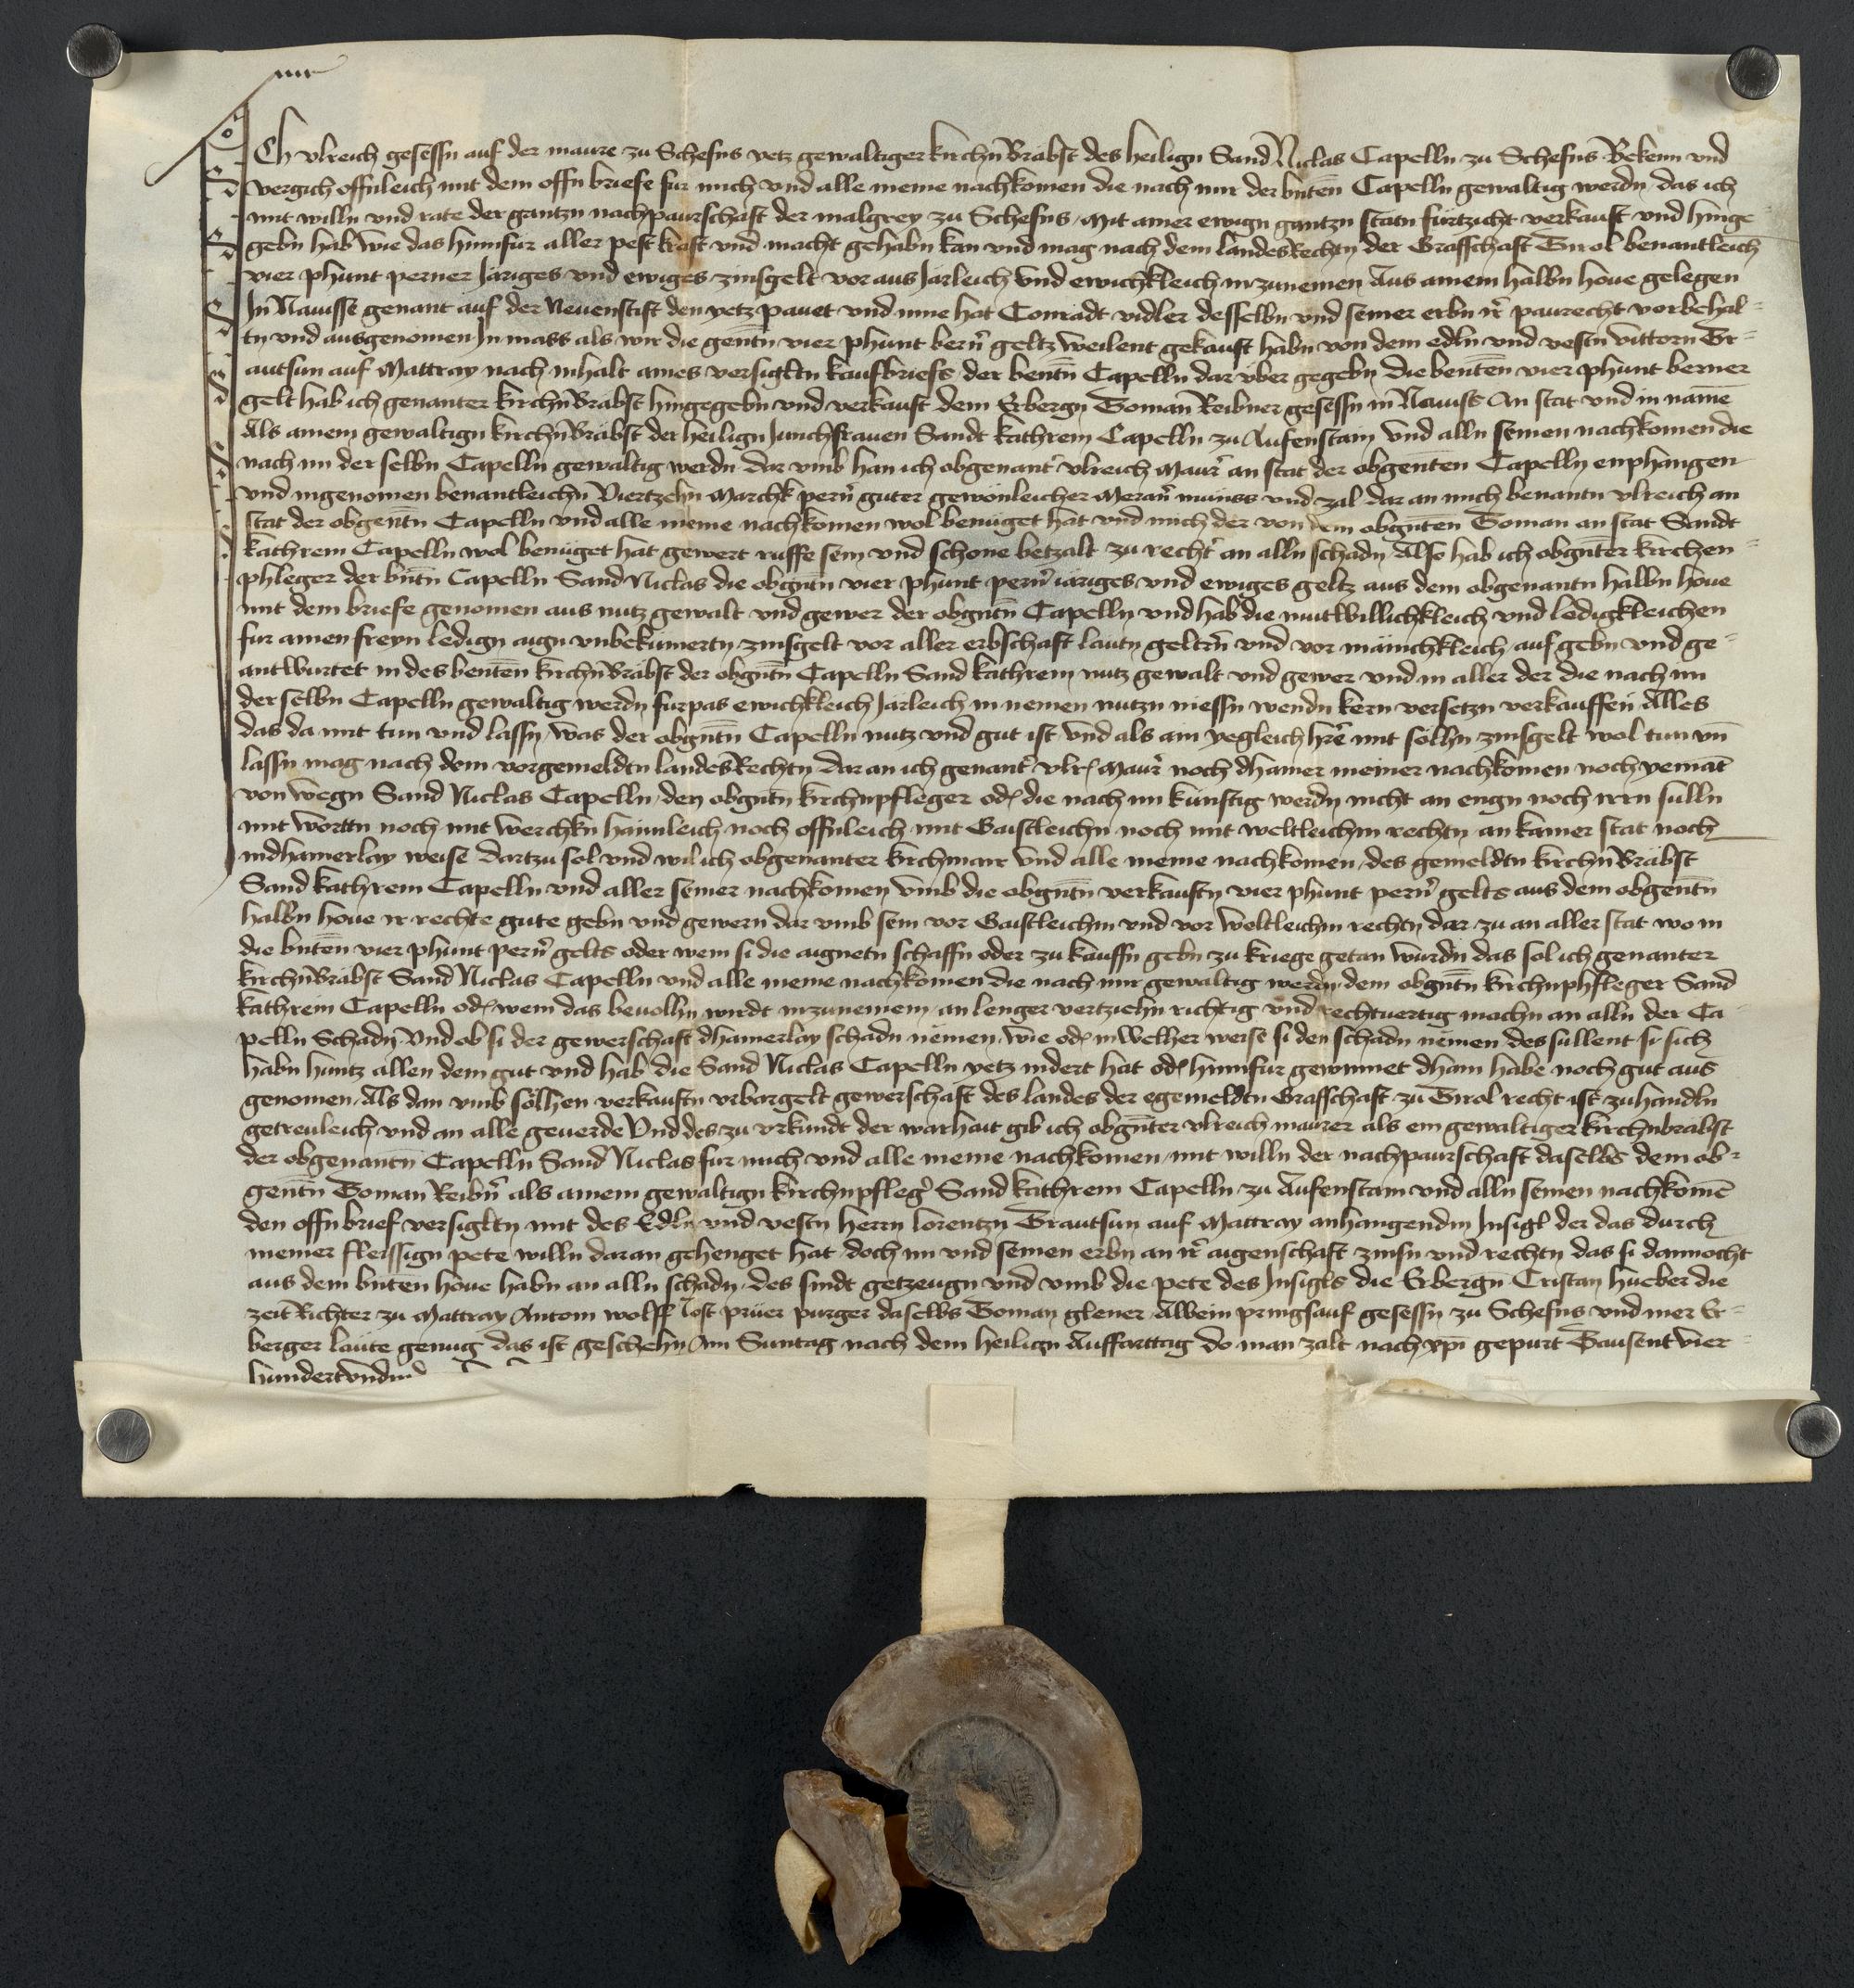 Ich vlreich gesessn auf der maure zu Schefns yetz gewaltiger kirchnBräbst des heilign Sand Niclas Capelln zu Schefns Bekenn vnd
vergich offnleich mit dem offn briefe fur mich vnd alle meine nachkomen die nach mir der bnten̄ Capelln gewaltig werdn das ich
mit willn vnd rate der gantzn nachpaurschaft der malgrey zu Schefns mit ainer ewign gantzn statn fürtzicht verkauft vnd hinge
gebn hab wie das hinnfür aller pest kraft vnd macht gehabn kan vnd mag nach dem landesRechtn der Graffschaft Tirol benantleich
vier phunt perner Järiges vnd ewiges zinsgelt vor aus Jarleich vnd ewichkleich in zunemen Aus ainem halbn houe gelegen
In Nauiss genant auf der Neuenstift den yetz pauet vnd inne hat Conradt vidler desselbn vnd seiner erbn ir̄ paurecht vorbehal-
tn vnd ausgenomen In mass als wir die gen̄tn vier phunt bern̄ geltz weilent gekauft habn von dem edln vnd vestn vittorn Tr-
autsun auf Mattray nach inhalt aines versigltn kaufbriefs der ben̄tn Capelln dar vber gegebn die benten̄ vier phunt berner
gelt hab ich genanter kirchnBräbst hingegebn vnd verkauft dem Erbergn Toman Reibner gesessn in Nauiss An stat vnd in namē
Als ainem gewaltign kirchnBräbst der heilign Junchfrauen Sandt kathrein Capelln zu Aufenstain vnd alln seinen nachkomen die
nach im der selbn Capelln gewaltig werdn dar vmb han ich obgenant̄ vlreich Maur̄ an stat der obgenten̄ Capelln enphangen
vnd ingenomen benantleichn Viertzehn Marchk pern̄ guter gewonleicher Meran̄ münss vnd zal dar an mich benantn vlreich an
stat der obgen̄tn Capelln vnd alle meine nachkomen wol benüget hat vnd mich der von dem obgnten̄ Toman an stat Sandt
kathrein Capelln wol benüget hat gewert ruffe sein vnd schone betzalt zu recht̄ an alln schadn Also hab ich obgnter̄ kirchen-
phleger der bntn̄ Capelln Sand Niclas die obgntn̄ vier phunt pern̄ iäriges vnd ewiges geltz aus dem obgenantn halbn houe
mit dem briefe genomen aus nutz gewalt vnd gewer der obgntn̄ Capelln vnd hab die mutwillichkleich vnd ledigkleichen
fur ainen freyn ledign aign vnbekumertn zinsgelt vor aller erbschaft lautn geltrn̄ vnd vor mäinchkleich auf gebn vnd ge-
antwurtet in des benten̄ kirchnBräbst der obgntn̄ Capelln Sand kathrein nutz gewalt vnd gewer vnd in aller der die nach im
der selbn Capelln gewaltig werdn furpas ewichkleich Järleich in nemen nutzn niessn wendn kern versetzn verkauffen Alles
das da mit tun vnd lassn was der obgntn̄ Capelln nutz vnd gut ist vnd als ain yegleich hr̄e mit sölhn zinsgelt wol tun vn̄
lassn mag nach dem vorgemeldtn landesRechtn dar an ich genant̄ vlr̄ Maur̄ noch dhainer meiner nachkomen noch yemāt
von wegn Sand Niclas Capelln den obgntn̄ kirchnpfleger od̄ die nach im künftig werdn nicht an engn noch irrn sulln
mit wortn noch mit werchkn haimleich noch offnleich mit Gaistleichn noch mit weltleichm rechtn an kainer stat noch
indhainerlay weise dartzu sol vnd wil ich obgenanter kirchmair vnd alle meine nachkomen des gemeldtn kirchnBräbst
Sand kathrein Capelln vnd aller seiner nachkomen vmb die obgntn̄ verkauftn vier phunt pern̄ gelts aus dem obgentn̄
halbn houe ir rechte gute gebn vnd gewern dar vmb sein vor Gaistleichm vnd vor weltleichm rechtn dar zu an aller stat wo in
die bnten̄ vier phunt pern̄ gelts oder wem si die aignetn schaffn oder zu kauffn gebn zu kriege getan wurdn das sol ich genanter
kirchnBräbst Sand Niclas Capelln vnd alle meine nachkomen die nach mir gewaltig werdn dem obgntn̄ kirchnphfleger Sand
kathrein Capelln od̄ wem das beuolhn wirdt inzunemem an lenger vertziehn richtig vnd rechtuertig machn an alln der Ca-
pelln Schadn vnd ob si der gewerschaft dhainerlay schadn nemen wie od̄ inwelher weise si den schadn nemen des süllent si sich
habn hintz allen dem gut vnd hab die Sand Niclas Capelln yetz indert hat od̄ hinnfur gewinnet dhain habe noch gut aus
genomen Als dan vmb sölhen verkauftn vrbargelt gewerschaft des landes der egemeldtn Graffschaft zu Tirol recht ist zuhandln
getreuleich vnd an alle geuerde Vnd des zu vrkundt der warhait gib ich obgnter̄ vlreich maurer als ein gewaltiger kirchnbräbst
der obgenantn̄ Capelln Sand Niclas fur mich vnd alle meine nachkomen mit willn der nachpaurschaft daselbs dem ob-
gentn̄ Toman Reibn̄ als ainem gewaltign kirchnpfleḡ Sand kathrein Capelln zu Aufenstain vnd alln seinen nachkomē
den offn brief versigltn mit des Edln vnd vestn herrn lorentzn Trautsun auf Mattray anhangendm Insigl der das durch
meiner fleissign pete willn daran gehenget hat doch im vnd seinen erbn an ir̄ aigenschaft zinsn vnd rechtn das si dannocht
aus dem bnten̄ houe habn an alln schadn des sindt getzeugn vnd vmb die pete des Insigls die Erbergn Cristan hueber die
zeit Richter zu Mattray Antoni wolff Jost prüer purger daselbs Toman glener Albein pringsauf gesessn zu Schefns vnd mer Er-
berger läute genug das ist geschehn Am Suntag nach dem heilign Auffarttag do man zalt nach xpi gepurt Tausent vier-
hundert vnd